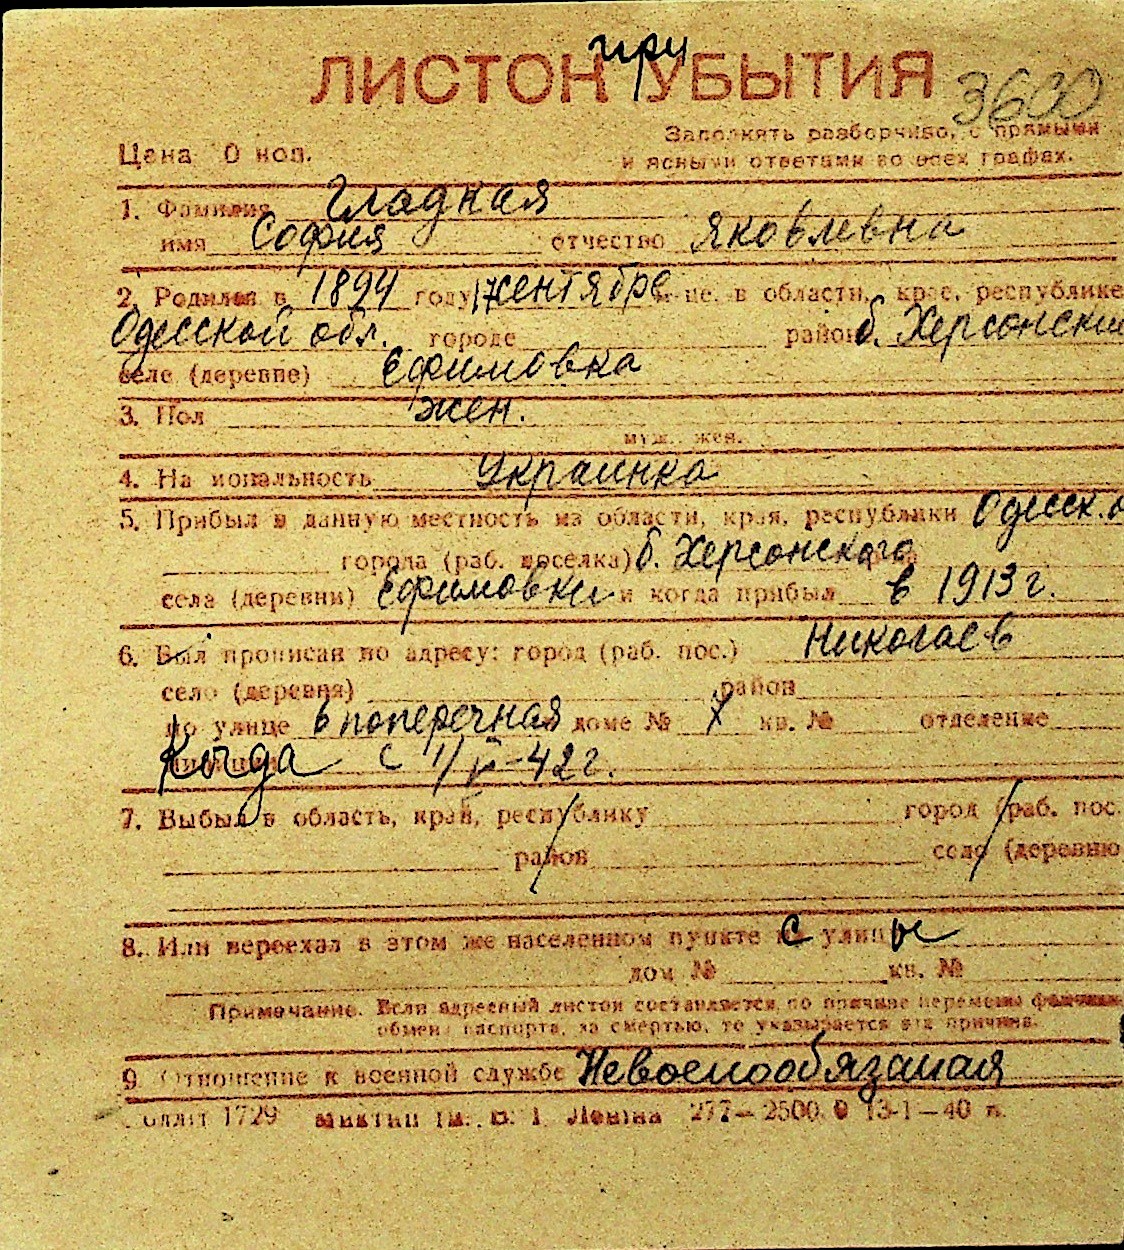 при
ЛИСТОК УБЫТИЯ 3600
Заполнять разборчиво, с прямыми
и ясными ответами во всех графах.
Цена 0 коп.
1. Фамилия Гладкая
имя София отчество Яковлевна
2. Родился в 1894 году 17 сентября м-це, в области, крае, республике
Одесской обл. городе район б. Херсонский
селе (деревне) Ефимовка
3. Пол жен.
муж., жен.
4. Национальность Украинка
5. Прибыл в данную местность из области, края, республики Одесск. о
города (раб. поселка) б. Херсонского
села (деревни) Ефимовки и когда прибыл в 1913 г.
6. Был прописан по адресу: город (раб. пос.) Николаев
село (деревня) район
по улице в поперечная доме № кв. № отделение
Когда с 1/ -42 г.
7. Выбыл в область, край, республику город (раб. пос.
район село (деревню
8. Или переехал в этом же населенном пункте с улицы
дом № кв. №
Примечание. Если адресный листок составляется по причине перемены фамилии,
обмена паспорта, за смертью, то указывается эта причина.
9. Отношение к военной службе Невоенообязаная
1729 им. В. І. Леніна 277—2500 13-1—40 п.